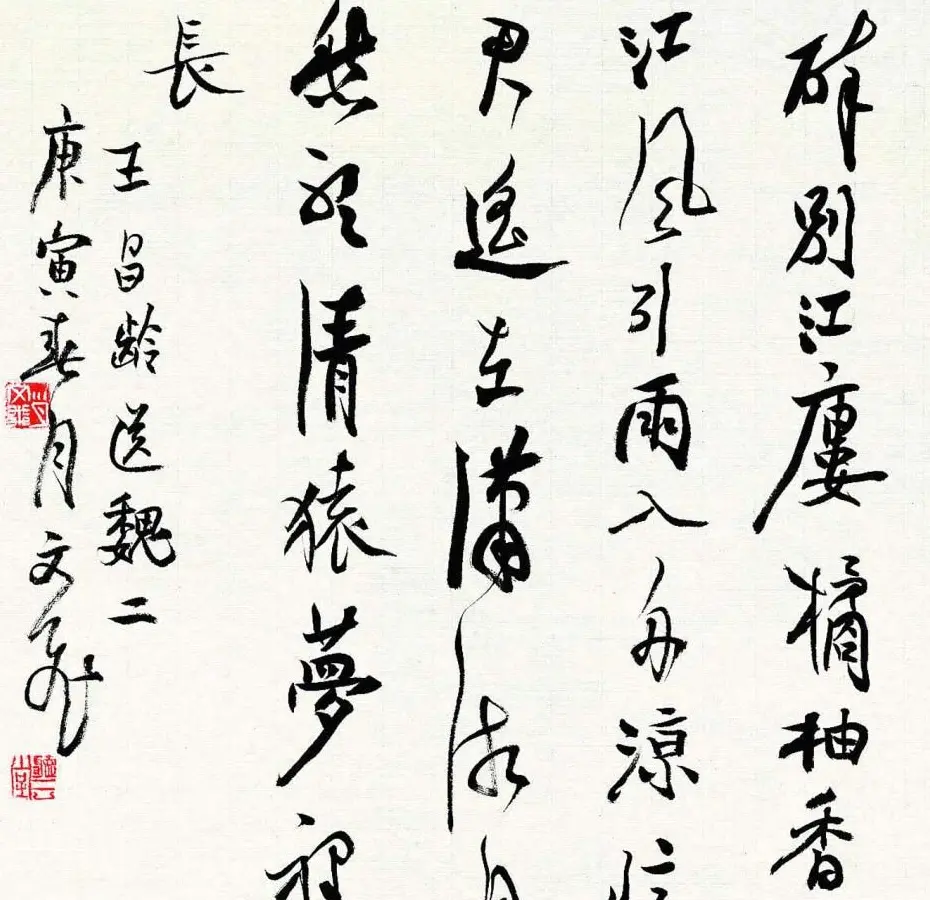 醉別江廔橘柚香
江風引雨入舟涼憶
君遙在瀟湘月
愁聽清猿夢裡
長
王昌齡送魏二
庚寅春月文